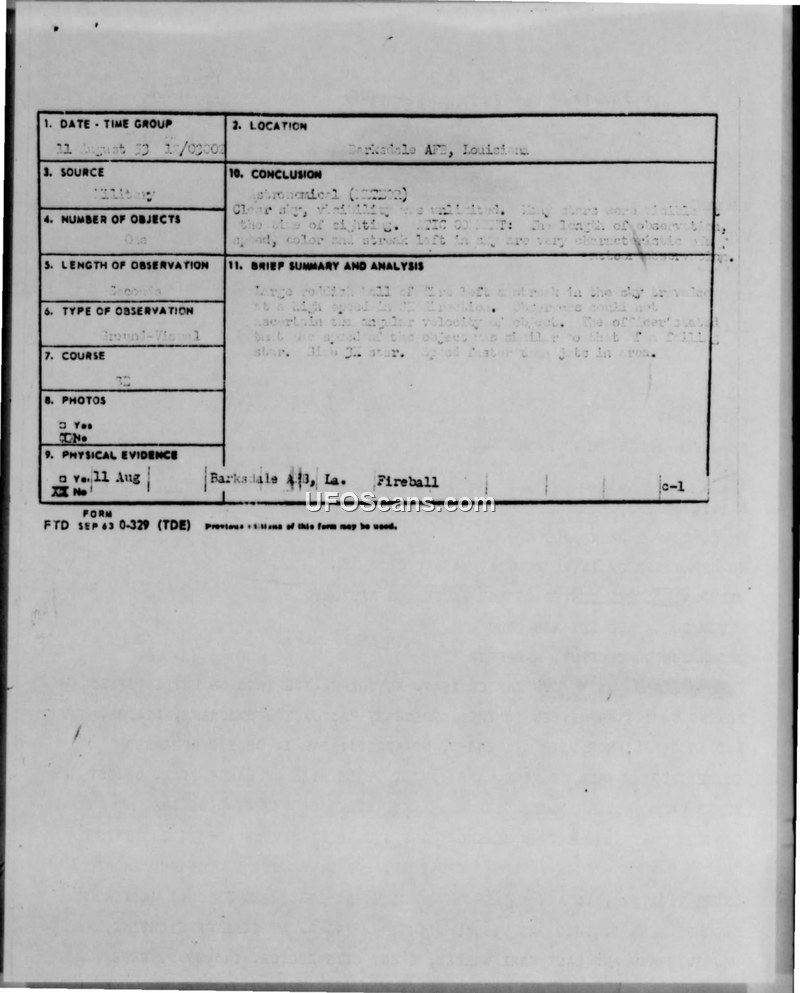 1. DATE - TIME GROUP
11 August 53
2. LOCATION
Barksdale AFB, Louisiana
3. SOURCE
Military
10. CONCLUSION
Astronomical (METEOR)
Clear sky, visibility was unlimited. Many stars were visible at
the time of sighting. ATIC COMMENT: The length of observation,
speed, color and streak left in sky are very characteristic of
meteor
4. NUMBER OF OBJECTS
One
5. LENGTH OF OBSERVATION
Seconds
11. BRIEF SUMMARY AND ANALYSIS
Large reddish ball of fire left a streak in the sky traveled
at a high speed in direction. Observers could not
ascertain the angular velocity of object. The officer stated
that the speed of the object was similar to that of a falling
star. Speed faster than jets in area.
6. TYPE OF OBSERVATION
Ground-Visual
7. COURSE
8. PHOTOS
□ Yes
No
9. PHYSICAL EVIDENCE
□ Yes
XX No
11 Aug Barksdale AFB, La. Fireball c-1
UFOScans.com
FORM
FTD SEP 63 0-329 (TDE) Previous editions of this form may be used.